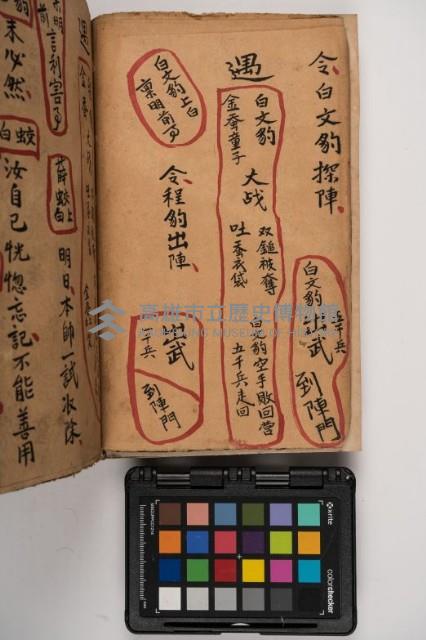 令白文豹探陣
白文豹
五千兵
出武
到陣門
遇
白文豹
金蚕童子
大战
双鎚被奪
吐蚕衣袋
白文豹空手敗回营
五千兵走回
白文豹上白
禀明前事
令程豹出陣
千兵
出武
到陣門
言利害
未必然
蛟白
薛蛟上白
明日本師一試
汝自己恍惚忘記不能善用
高雄市立歷史博物館
KAOHSIUNG MUSEUM OF HISTORY
x-rite
colorchecker